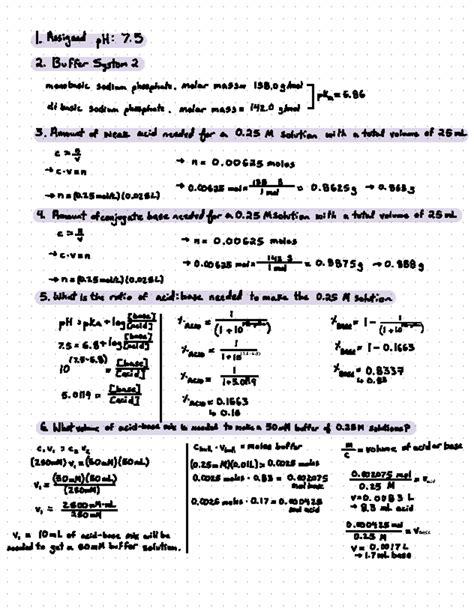 1. Assigned pH: 7.5
2. Buffer System 2
monobasic sodium phosphate. molar mass= 138.0 g/mol
di basic sodium phosphate. molar mass= 142.0 g/mol
pKa=6.86
3. Amount of weak acid needed for a 0.25 M solution with a total volume of 25 mL
c = n/v
→ c·v=n
→ n=(0.25mol/L)(0.025L)
→ n= 0.00625 moles
→ 0.00625 mol × 138 g / 1 mol = 0.8625g → 0.863g
4. Amount of conjugate base needed for a 0.25 M solution with a total volume of 25 mL
c = n/v
→ c·v=n
→ n=(0.25mol/L)(0.025L)
→ n= 0.00625 moles
→ 0.00625 mol × 142 g / 1 mol = 0.8875g → 0.888g
5. What is the ratio of acid:base needed to make the 0.25 M solution
pH = pKa + log [base]/[acid]
7.5 = 6.8 + log [base]/[acid]
10^(7.5-6.8) = [base]/[acid]
5.0119 = [base]/[acid]
X Acid = 1
X Acid = 1
X Acid = 1 / 1+5.0119
X Acid = 0.1663
X Base = 1 -
X Base = 1 - 0.1663
X Base = 0.8337
6. What volume of acid-base mix is needed to make a 50mM buffer of 0.25M solutions?
C₁V₁ = C₂V₂
(250mM) V₁ = (50mM)(50mL)
V₁ = (50mM)(50mL) / (250mM)
V₁ = 2500 mM·mL / 250 mM
V₁ = 10mL of acid-base mix will be
needed to get a 50mM buffer solution.
= moles buffer
(0.25M)(0.01L) = 0.0025 moles
0.0025 moles · 0.83 = 0.002075
mol base
0.0025 moles · 0.17 = 0.000425
mol acid
= volume of acid or base
0.002075 mol / 0.25 M =
V=0.0083 L
→ 8.3 mL acid
0.000425 mol / 0.25 M = V base
V = 0.0017 L
→ 1.7mL base